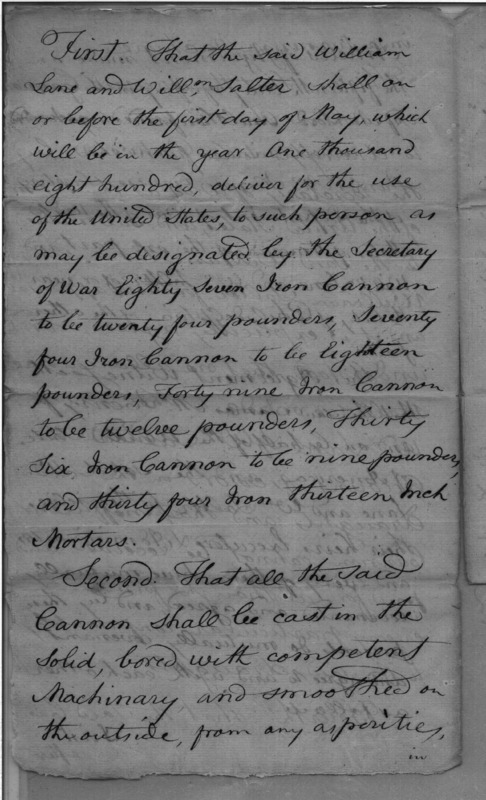 First. That the said William
Lane and Willm. Salter shall on
or before the first day of May, which
will be in the year One thousand
eight hundred, deliver for the use
of the United States, to such person as
may be designated by the Secretary
of War Eighty Seven Iron Cannon
to be twenty four pounders, Seventy
four Iron Cannon to be Eighteen
pounders, Forty nine Iron Cannon
to be twelve pounders, Thirty
Six Iron Cannon to be nine pounders,
and thirty four Iron thirteen Inch
Mortars.
Second. That all the said
Cannon shall be cast in the
solid, bored with competent
Machinary and smoothed on
the outside, from any asperities,
in